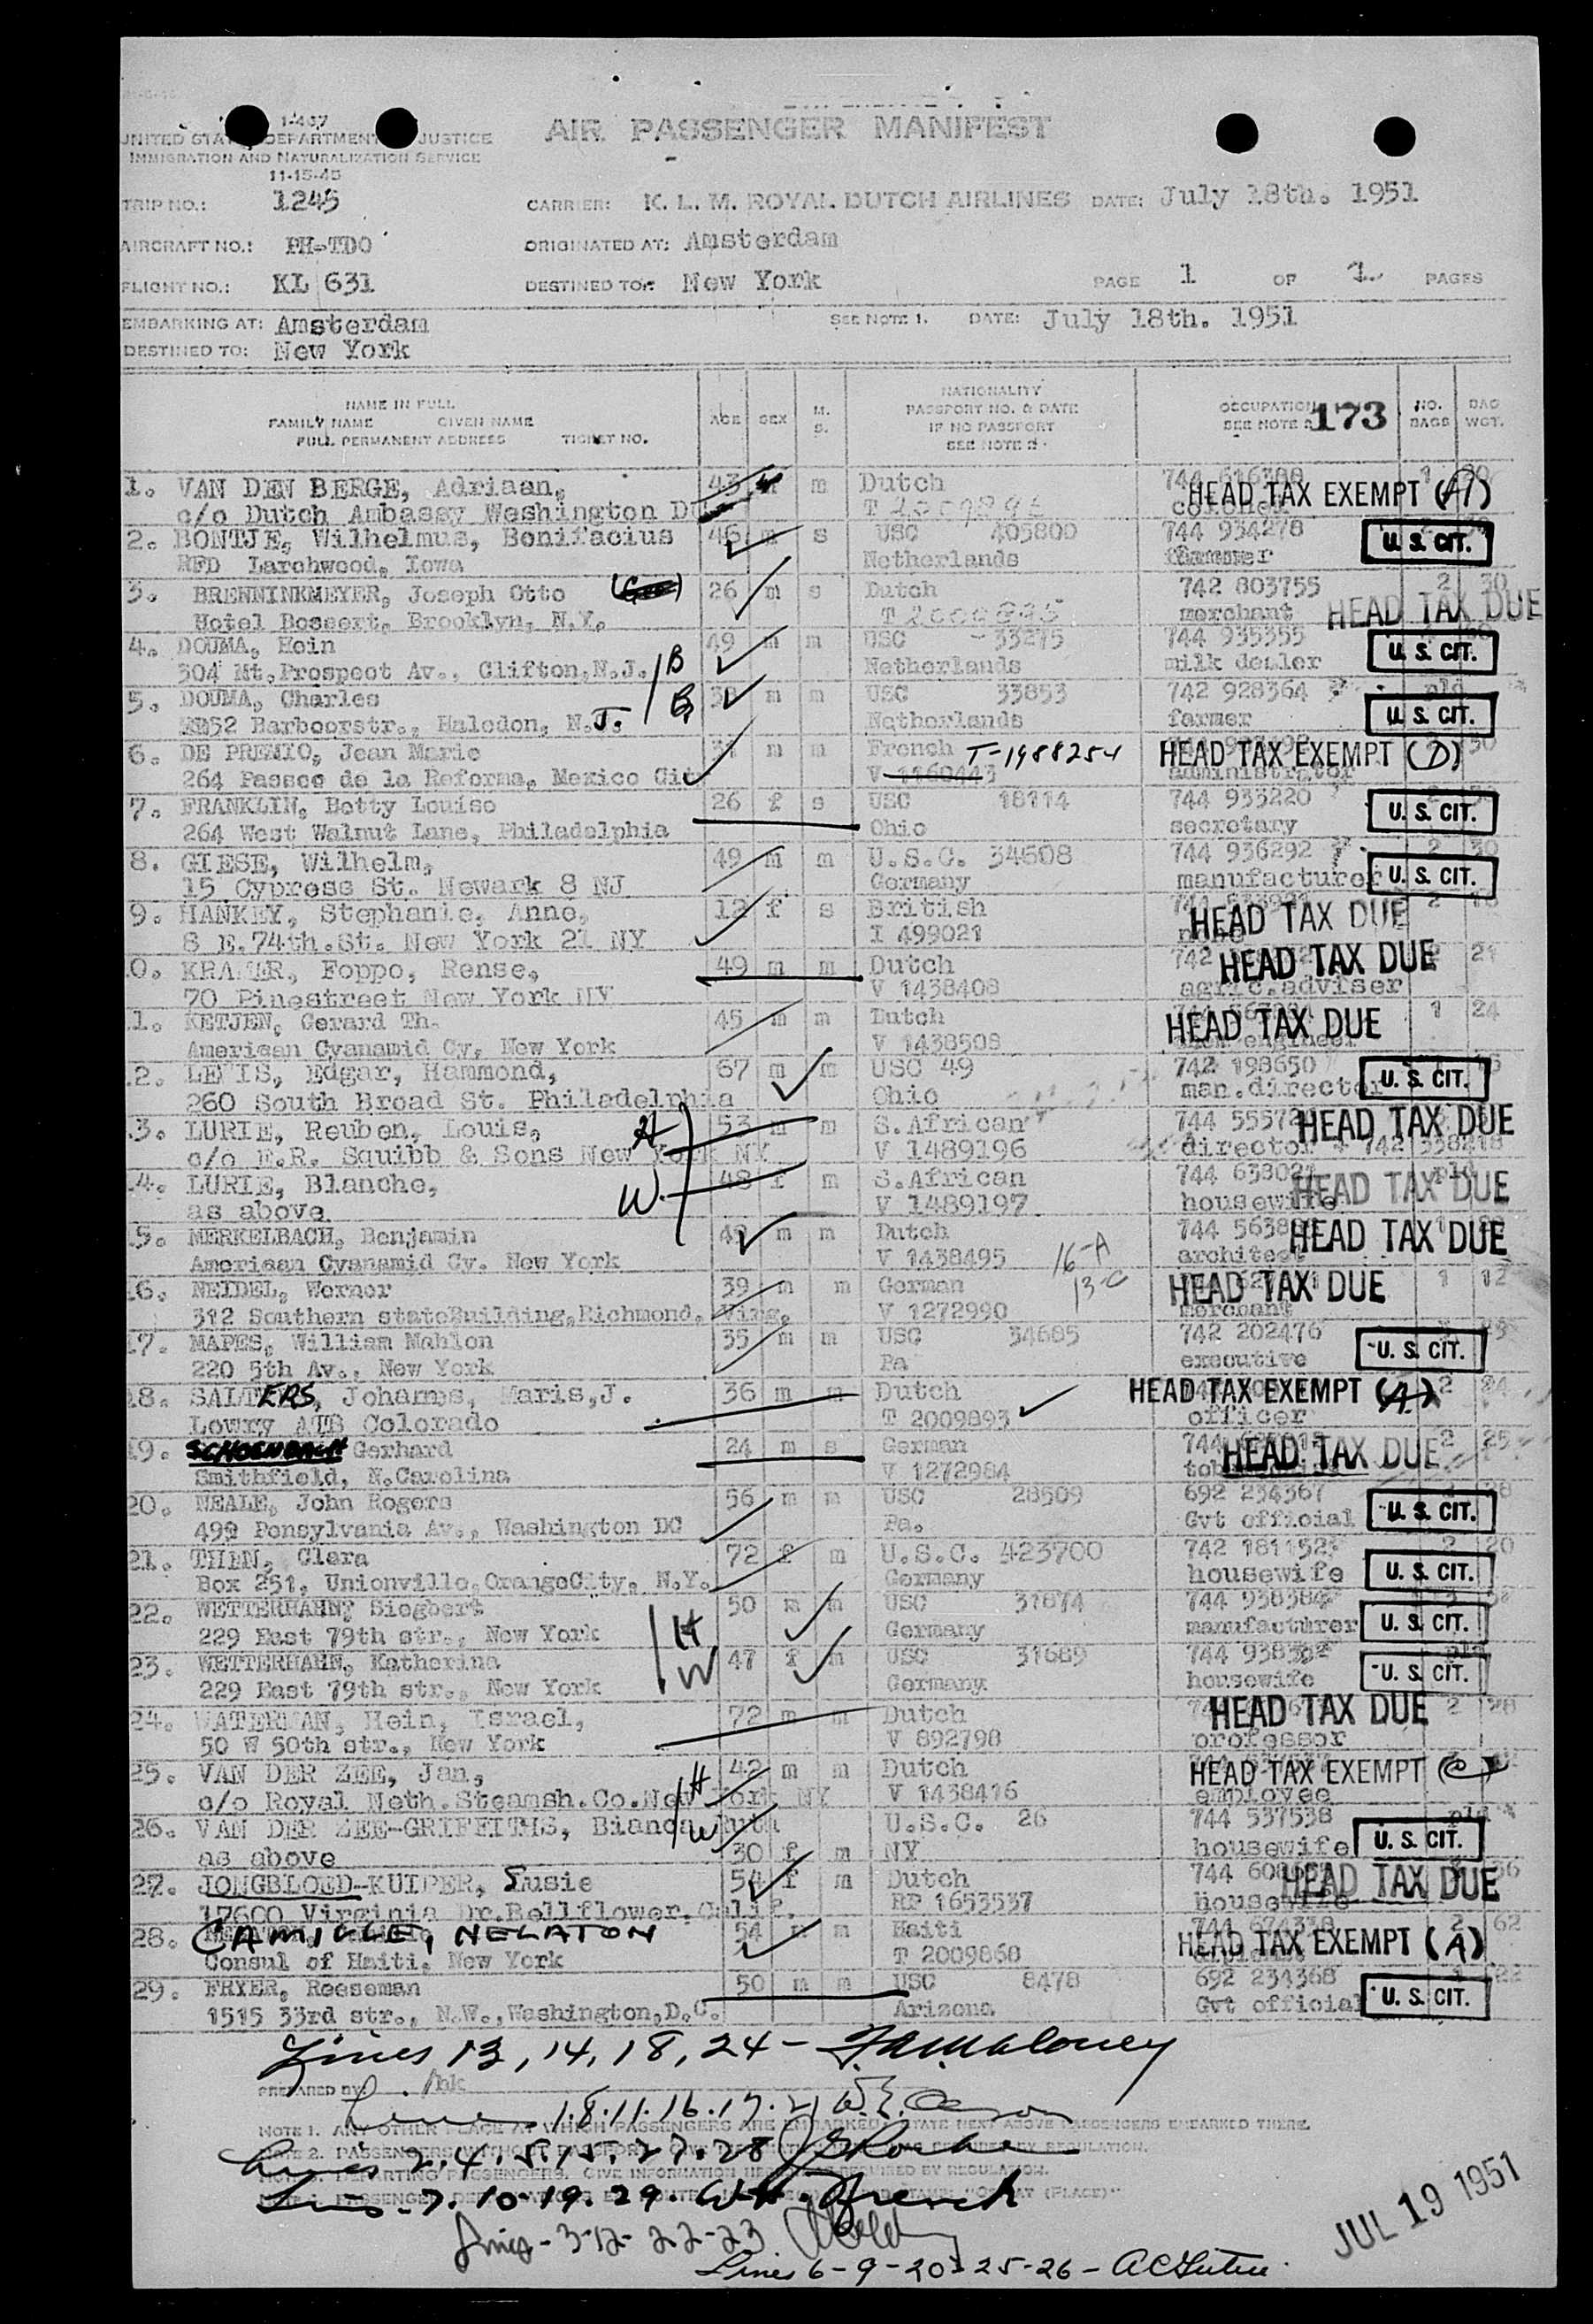 I-447
UNITED STATES DEPARTMENT OF JUSTICE
IMMIGRATION AND NATURALIZATION SERVICE
11-15-45
AIR PASSENGER MANIFEST
TRIP NO.: 1245 CARRIER: K. L. M. ROYAL DUTCH AIRLINES DATE: July 18th. 1951
AIRCRAFT NO.: PH-TDO ORIGINATED AT: Amsterdam
FLIGHT NO.: KL 631 DESTINED TO: New York PAGE 1 OF 1. PAGES
EMBARKING AT: Amsterdam SEE NOTE 1. DATE: July 18th. 1951
DESTINED TO: New York
NAME IN FULL
FAMILY NAME GIVEN NAME
FULL PERMANENT ADDRESS TICKET NO.
AGE SEX M. S.
NATIONALITY
PASSPORT NO. & DATE
IF NO PASSPORT
SEE NOTE 2
OCCUPATION
SEE NOTE 2 173
NO. BAGS BAG WGT.
1. VAN DEN BERGE, Adriaan, 43 m Dutch 744 616388 1
c/o Dutch Ambassy Washington DC HEAD TAX EXEMPT (A1)
2. BONTJE, Wilhelmus, Bonifacius 46 m s USC 405800 744 934278
RFD Larchwood, Iowa Netherlands farmer U. S. CIT.
3. BRENNINKMEYER, Joseph Otto 26 m s Dutch 742 803755 2 30
Hotel Bossert, Brooklyn, N.Y. T 2009895 merchant HEAD TAX DUE
4. DOUMA, Hein 49 m m USC 33275 744 935355
304 Mt.Prospect Av., Clifton,N.J. B Netherlands milk dealer U. S. CIT.
5. DOUMA, Charles m m USC 33853 742 928364 pld
52 Barboorstr., Haledon, N.J. B Netherlands farmer U. S. CIT.
6. DE PREMIO, Jean Marie m m French T-1988254 HEAD TAX EXEMPT (D) 30
264 Passeo de la Reforma, Mexico Cit V 1160443 administrator
7. FRANKLIN, Betty Louise 26 f s USC 18114 744 933220
264 West Walnut Lane, Philadelphia Ohio secretary U. S. CIT.
8. GIESE, Wilhelm, 49 m m U.S.C. 34608 744 936292 2 30
15 Cypress St. Newark 8 NJ Germany manufacturer U. S. CIT.
9. HANKEY, Stephanie, Anne, 12 f s British 2 18
8 E.74th.St. New York 21 NY I 499021 none HEAD TAX DUE
0. KRAMER, Foppo, Rense, 49 m m Dutch 742 HEAD TAX DUE 21
70 Pinestreet New York NY V 1438408 agric.adviser
1. KETJEN, Gerard Th. 45 m m Dutch 1 24
American Cyanamid Cy, New York V 1438508 engineer HEAD TAX DUE
2. LEWIS, Edgar, Hammond, 67 m m USC 49 742 198650
260 South Broad St. Philadelphia Ohio man.director U. S. CIT.
3. LURIE, Reuben, Louis, H 53 m m S.African 744 HEAD TAX DUE
c/o E.R. Squibb & Sons New York NY V 1489196 director + 742 338218
4. LURIE, Blanche, W. 48 f m S.African 744 638021 pld
as above V 1489197 housewife HEAD TAX DUE
5. MERKELBACH, Benjamin 49 m m Dutch 744 HEAD TAX DUE 1
American Cyanamid Cy. New York V 1438495 16-A architect
6. NEIDEL, Werner 39 m m German 13-C HEAD TAX DUE 1 12
312 Southern stateBuilding,Richmond, Virg. V 1272990 merchant
7. MAPES, William Mahlon 35 m m USC 34685 742 202476
220 5th Av., New York Pa executive U. S. CIT.
18. SALTERS, Johannes, Maris,J. 36 m m Dutch HEAD TAX EXEMPT (A) 2 24
Lowry AFB Colorado T 2009893 officer
19. SCHOENBACH Gerhard 24 m s German 744 HEAD TAX DUE 2 25
Smithfield, N.Carolina V 1272984
20. NEALE, John Rogers 56 m m USC 28509 692 234367
499 Pensylvania Av., Washington DC Pa. Gvt official U. S. CIT.
21. THEN, Clara 72 f m U.S.C. 423700 742 181152 2 20
Box 251, Unionville,OrangeCity, N.Y. Germany housewife U. S. CIT.
22. WETTERHAHN, Siegbert H 50 m m USC 31874 744 938384
229 East 79th str., New York Germany manufacturer U. S. CIT.
23. WETTERHAHN, Katherina W 47 f m USC 31689 744 pld
229 East 79th str., New York Germany housewife U. S. CIT.
24. WATERMAN, Hein, Israel, 72 m m Dutch HEAD TAX DUE 2 28
50 W 50th str., New York V 892798 professor
25. VAN DER ZEE, Jan, H 42 m m Dutch HEAD TAX EXEMPT (C)
c/o Royal Neth.Steamsh.Co.New York NY V 1438416 employee
26. VAN DER ZEE-GRIFFITHS, Bianca Ruth W U.S.C. 26 744 537538 pld
as above 30 f m NY housewife U. S. CIT.
27. JONGBLOED-KUIPER, Susie 54 f m Dutch 744 HEAD TAX DUE 36
17600 Virginia Dr.Bellflower.Calif. RP 1653537 housewife
28. CAMILLE, NELATON 54 m Haiti 744 2 62
Consul of Haiti, New York T 2009868 HEAD TAX EXEMPT (A)
29. FRYER, Reeseman 50 m m USC 8478 692 234368 1 22
1515 33rd str., N.W.,Washington,D.C. Arizona Gvt official U. S. CIT.
Lines 13, 14, 18, 24 - F.A. Maloney
PREPARED BY: /hk
Lines 1.8.11.16.17.21
NOTE 1. ANY OTHER PLACE AT WHICH PASSENGERS ARE EMBARKED, STATE NEXT ABOVE PASSENGERS EMBARKED THERE.
Lines 2.4.5.15.27.28
DEPARTING PASSENGERS. GIVE INFORMATION REQUIRED BY REGULATION.
Lines-7.10.19.29. W.H. French
Lines-3-12-22-23
Lines 6-9-20-25-26-
JUL 19 1951